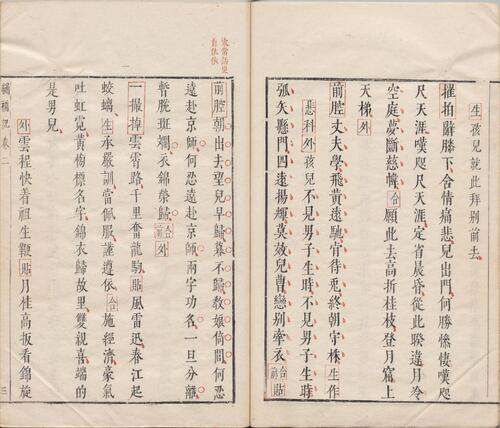 生 孩兒就此拜別前去
摧拍辭膝下舍情痛悲兒出門何勝慘悽嘆咫
尺天涯嘆咫尺天涯定省晨昏從此暌違月冷
空庭夢斷慈幃合願此去高折桂枝登月窟上
天梯外
前腔丈夫學飛黃遠馳肯待兎終朝守株生作
悲科外孩兒不見男子生時不見男子生時
弧矢懸門四遠揚輝莫效兒曹戀別牽衣合前貼
前腔朝出去望兒早歸暮不歸教娘倚閭何恐
遠赴京師何恐遠赴京師兩字功名一旦分離
暫脫斑斕衣錦榮歸合前外
一撮掉雲霄路千里奮龍駒貼風雷迅春江起
蛟螭生承嚴訓當佩服謹遵依合施經濟豪氣
吐虹霓黃榜標名字錦衣歸故里雙親喜端的
是男兒
外雲程快着祖生鞭貼月桂高扳看錦旋
繡襦記卷一
三